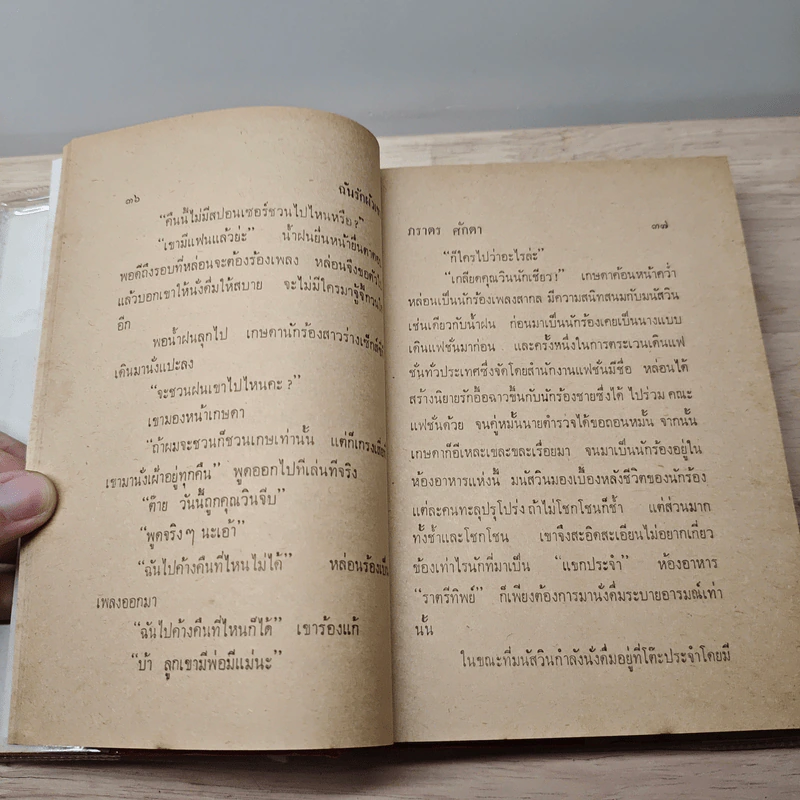 ๓๖
ฉันรักผัวเขา
“คืนนี้ไม่มีสปอนเซอร์ชวนไปไหนหรือ?”
“เขามีแฟนแล้วย่ะ” น้ำฝนยื่นหน้ายื่นตาตอบ
พอดีถึงรอบที่หล่อนจะต้องร้องเพลง หล่อนจึงขอตัวไป
แล้วบอกเขาให้นั่งดื่มให้สบาย จะไม่มีใครมาจู้จี้กวนใจ
อีก
พอน้ำฝนลุกไป เกษดานักร้องสาวร่างเซ็กส์ซี่
เดินมานั่งแปะลง
“จะชวนฝนเขาไปไหนคะ?”
เขามองหน้าเกษดา
“ถ้าผมจะชวนก็ชวนเกษเท่านั้น แต่ก็เกรงเสี่ย
เขามานั่งเฝ้าอยู่ทุกคืน” พูดออกไปทีเล่นทีจริง
“ต๊าย วันนี้ถูกคุณวินจีบ”
“พูดจริงๆ นะเอ้า”
“ฉันไปค้างคืนที่ไหนไม่ได้” หล่อนร้องเป็น
เพลงออกมา
“ฉันไปค้างคืนที่ไหนก็ได้” เขาร้องแก้
“บ้า ลูกเขามีพ่อมีแม่นะ”
ภราดร ศักดา
๓๗
“ก็ใครไปว่าอะไรล่ะ”
“เกลียดคุณวินนักเชียว!” เกษดาค้อนหน้าคว่ำ
หล่อนเป็นนักร้องเพลงสากล มีความสนิทสนมกับมนัสวิน
เช่นเดียวกับน้ำฝน ก่อนมาเป็นนักร้องเคยเป็นนางแบบ
เดินแฟชั่นมาก่อน และครั้งหนึ่งในการตระเวนเดินแฟ
ชั่นทั่วประเทศซึ่งจัดโดยสำนักงานแฟชั่นมีชื่อ หล่อนได้
สร้างนิยายรักอื้อฉาวขึ้นกับนักร้องชายซึ่งได้ ไปร่วม คณะ
แฟชั่นด้วย จนคู่หมั้นนายตำรวจได้ขอถอนหมั้น จากนั้น
เกษดาก็อีเหละเขละขละเรื่อยมา จนมาเป็นนักร้องอยู่ใน
ห้องอาหารแห่งนี้ มนัสวินมองเบื้องหลังชีวิตของนักร้อง
แต่ละคนทะลุปรุโปร่ง ถ้าไม่โชกโชนก็ช้ำ แต่ส่วนมาก
ทั้งช้ำและโชกโชน เขาจึงสะอิดสะเอียนไม่อยากเกี่ยว
ข้องเท่าไรนักที่มาเป็น “แขกประจำ” ห้องอาหาร
“ราตรีทิพย์” ก็เพียงต้องการมานั่งดื่มระบายอารมณ์เท่า
นั้น
ในขณะที่มนัสวินกำลังนั่งดื่มอยู่ที่โต๊ะประจำโดยมี